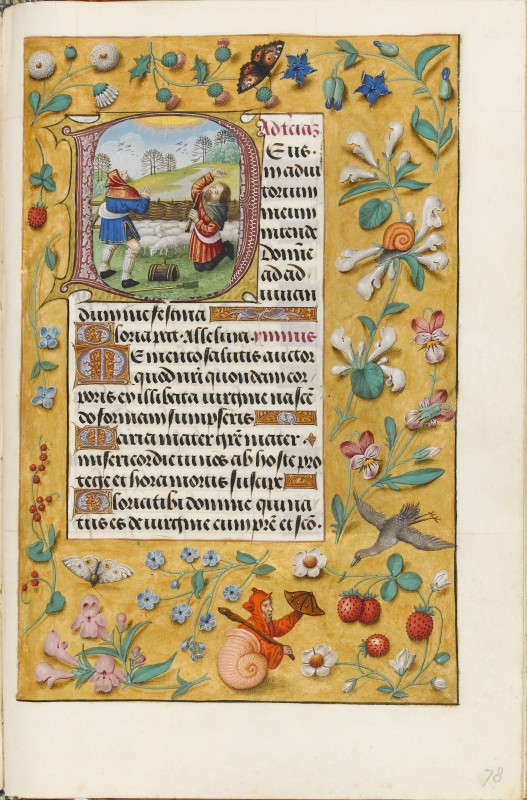 Ad terciā
Deus
in adiu
torium
meum
intende
Domine
ad ad
iuuan
dum me festina
Gloria patri. Alleluia. ymnus
Memento salutis auctor
quod nr̄i quondam cor
poris ex illibata uirgine nascē
do formam sumpseris
Maria mater gr̄e mater
misericordie tu nos ab hoste pro
tege et hora mortis suscipe
Gloria tibi domine qui na
tus es de uirgine cum pr̄e et scō.
78